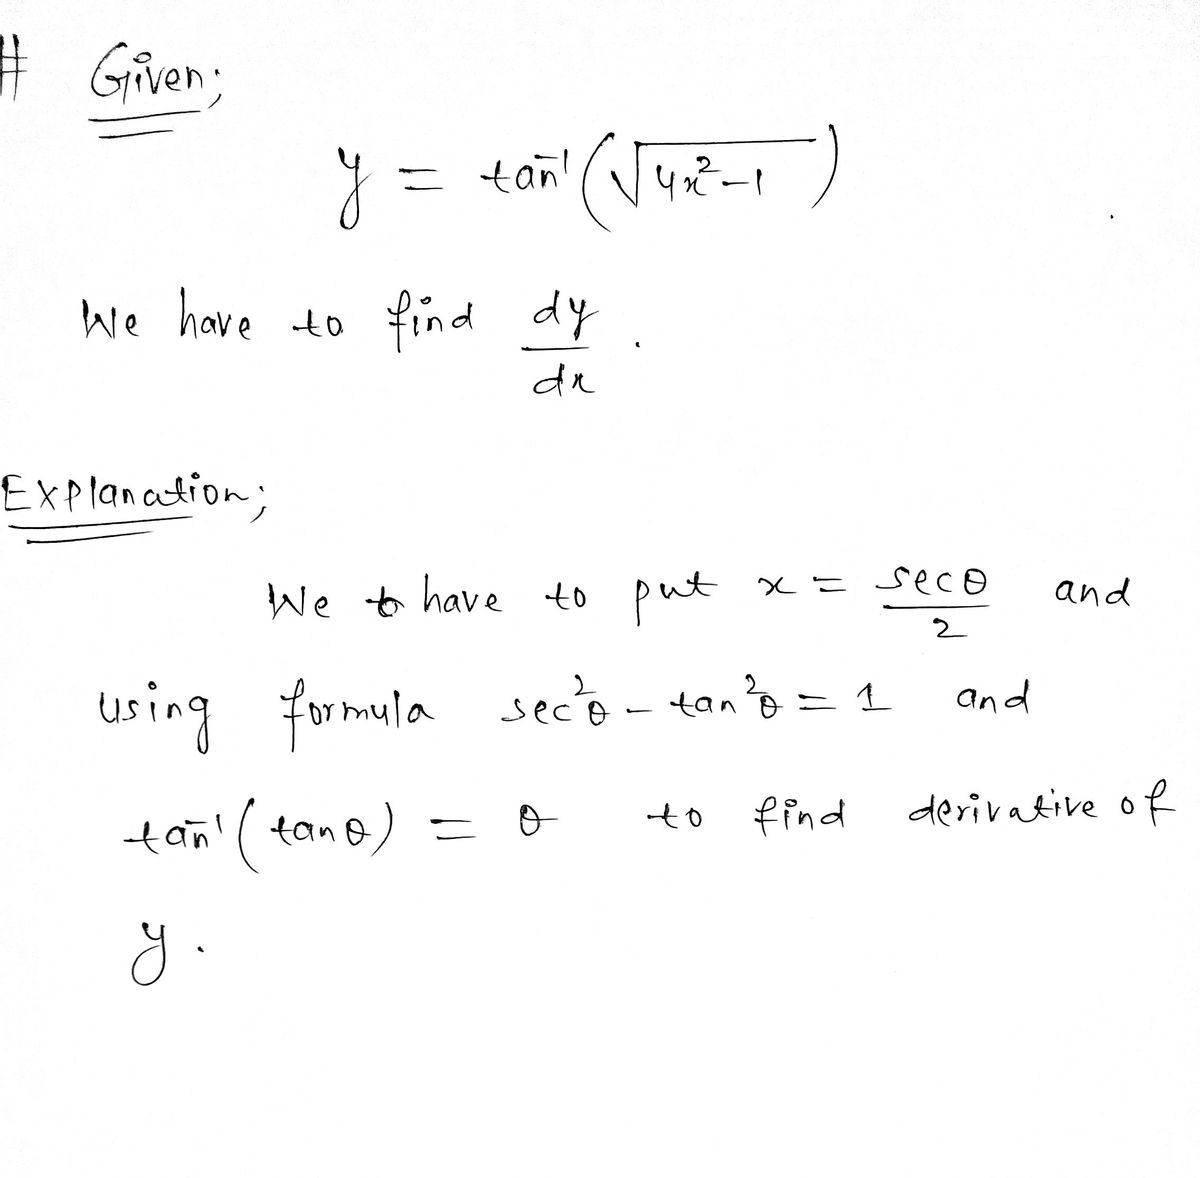 # Given;
y = tan⁻¹(√4x²-1)
We have to find dy/dx.
Explanation;
We to have to put x = secθ/2 and
using formula sec²θ - tan²θ = 1 and
tan⁻¹(tanθ) = θ to find derivative of
y.